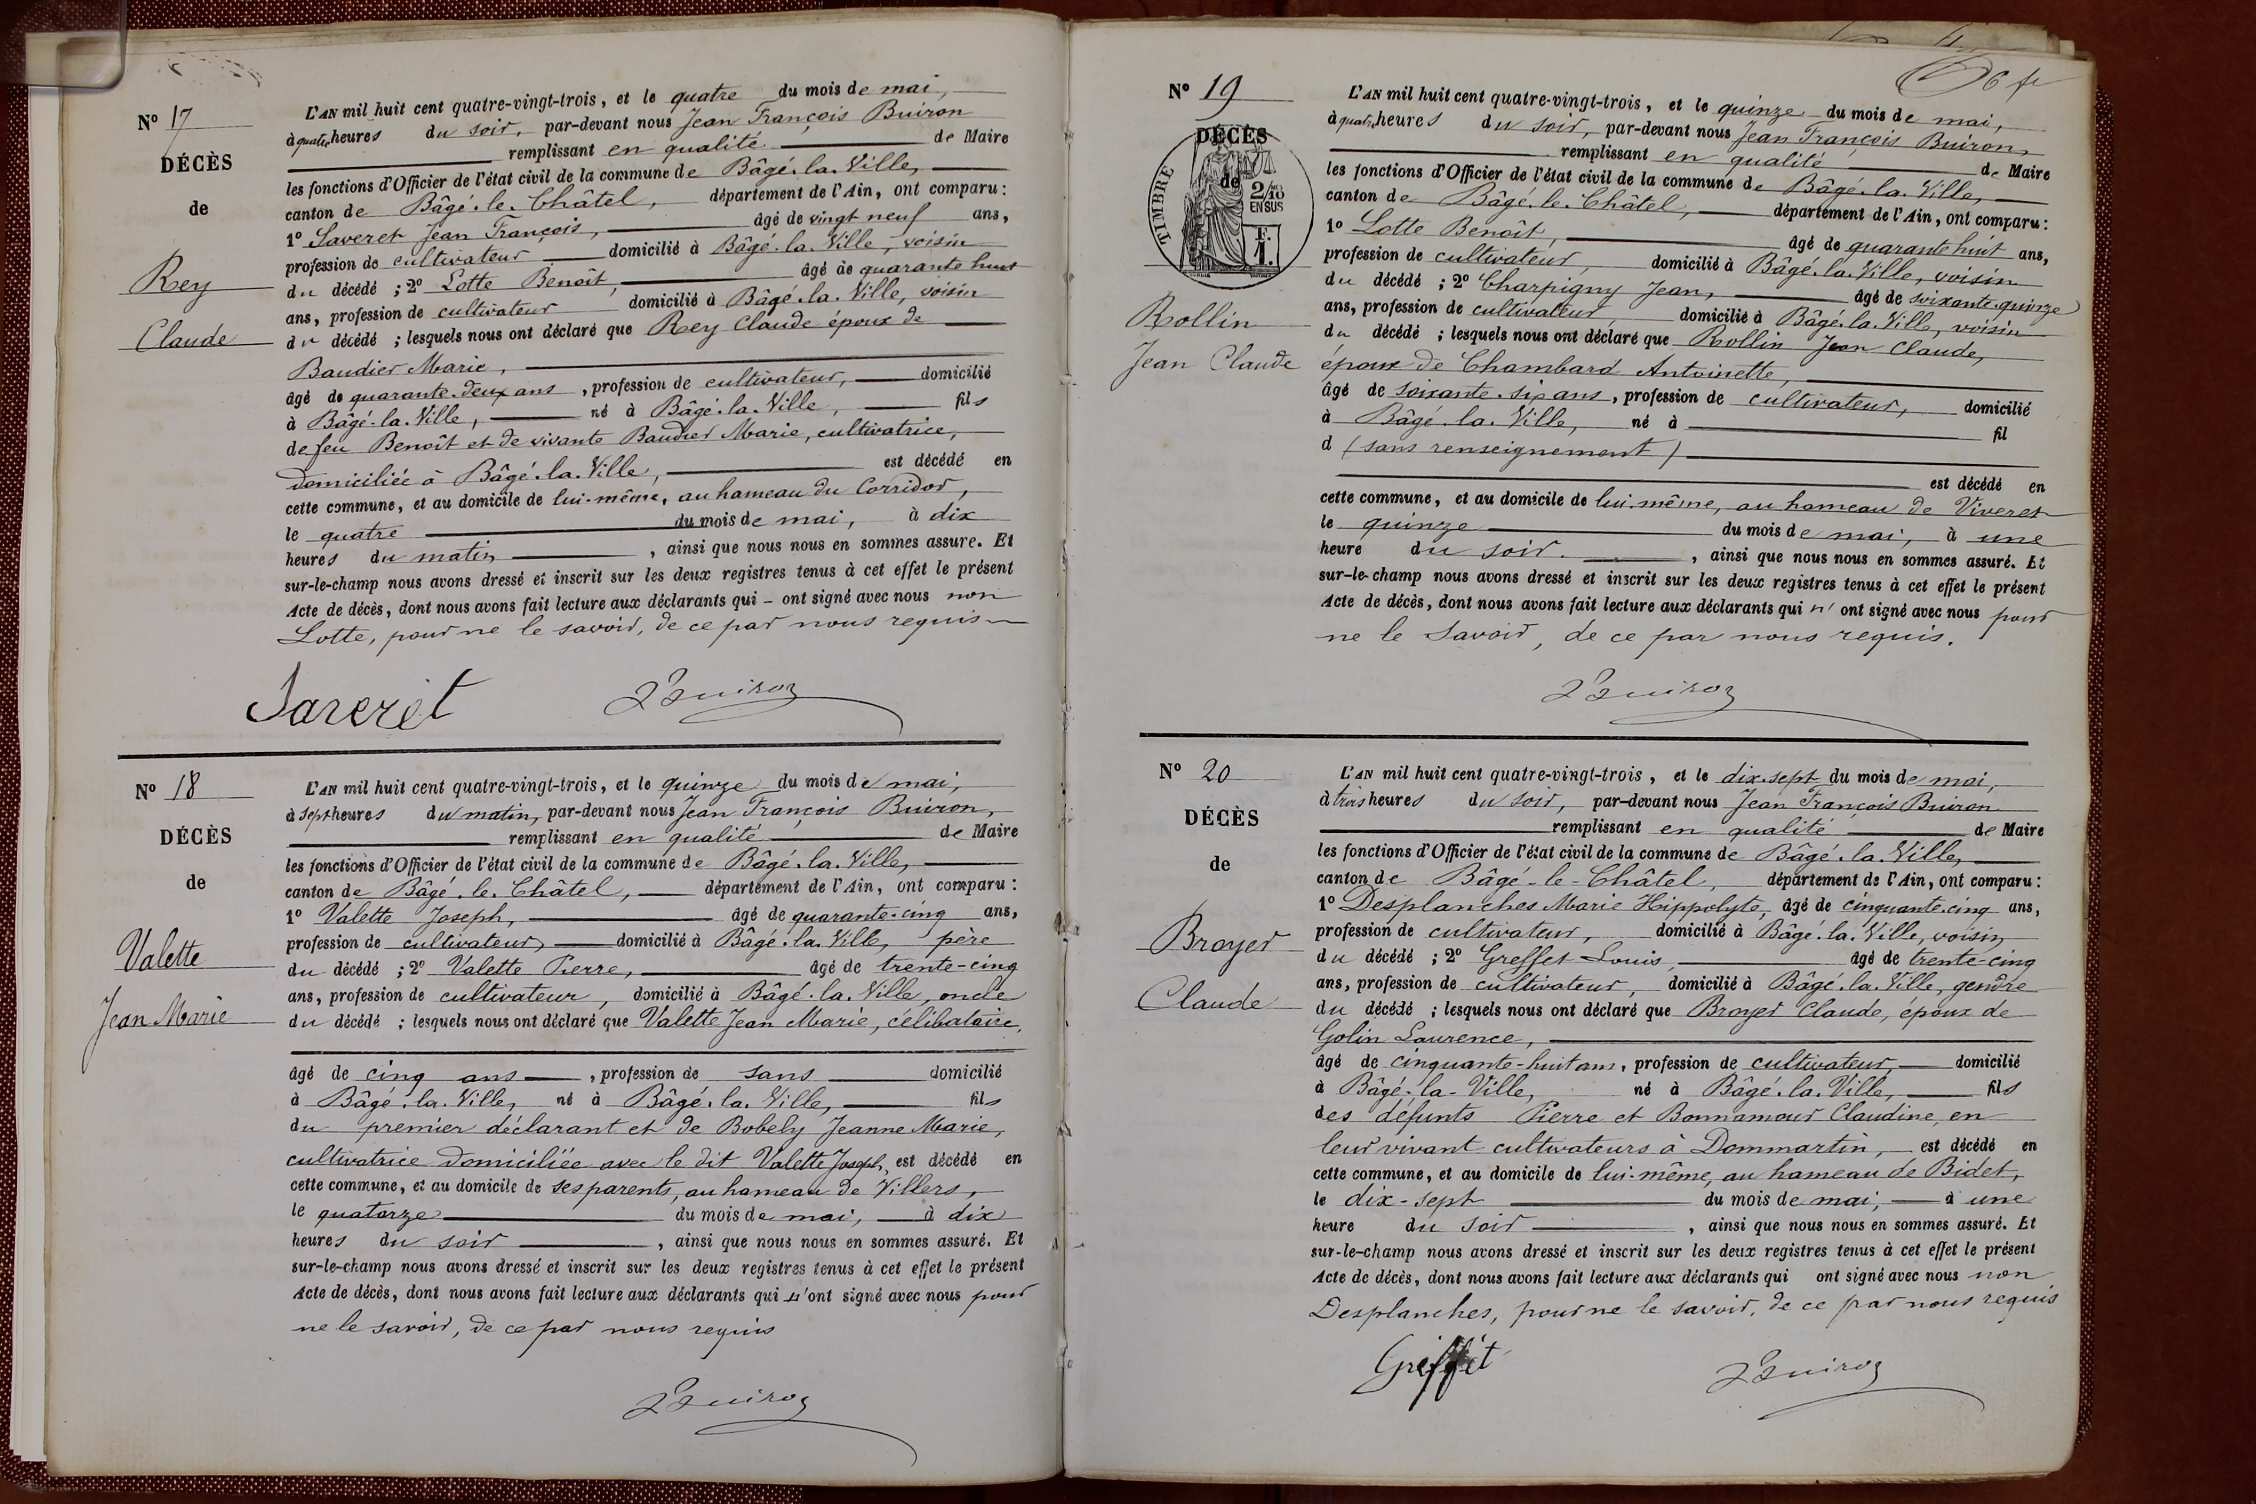 N° 17
DÉCÈS
de
Rey
Claude
L'AN mil huit cent quatre-vingt-trois, et le quatre du mois de mai,
à quatre heures du soir, par-devant nous Jean François Buiron
remplissant en qualité de Maire
les fonctions d'Officier de l'état civil de la commune de Bâgé-la-Ville,
canton de Bâgé-le-Châtel, département de l'Ain, ont comparu :
1° Saveret Jean François, âgé de vingt neuf ans,
profession de cultivateur domicilié à Bâgé-la-Ville, voisin
du décédé ; 2° Lotte Benoît, âgé de quarante huit
ans, profession de cultivateur domicilié à Bâgé-la-Ville, voisin
du décédé ; lesquels nous ont déclaré que Rey Claude époux de
Baudier Marie,
âgé de quarante-deux ans, profession de cultivateur, domicilié
à Bâgé-la-Ville, né à Bâgé-la-Ville, fils
de feu Benoît et de vivante Baudier Marie, cultivatrice,
domiciliée à Bâgé-la-Ville, est décédé en
cette commune, et au domicile de lui-même, au hameau du Corridor,
le quatre du mois de mai, à dix
heures du matin, ainsi que nous nous en sommes assuré. Et
sur-le-champ nous avons dressé et inscrit sur les deux registres tenus à cet effet le présent
Acte de décès, dont nous avons fait lecture aux déclarants qui - ont signé avec nous non
Lotte, pour ne le savoir, de ce par nous requis
Saveret Buiron
N° 18
DÉCÈS
de
Valette
Jean Marie
L'AN mil huit cent quatre-vingt-trois, et le quinze du mois de mai,
à sept heures du matin, par-devant nous Jean François Buiron,
remplissant en qualité de Maire
les fonctions d'Officier de l'état civil de la commune de Bâgé-la-Ville,
canton de Bâgé-le-Châtel, département de l'Ain, ont comparu :
1° Valette Joseph, âgé de quarante-cinq ans,
profession de cultivateur, domicilié à Bâgé-la-Ville, père
du décédé ; 2° Valette Pierre, âgé de trente-cinq
ans, profession de cultivateur, domicilié à Bâgé-la-Ville, oncle
du décédé ; lesquels nous ont déclaré que Valette Jean Marie, célibataire,
âgé de cinq ans, profession de sans domicilié
à Bâgé-la-Ville, né à Bâgé-la-Ville, fils
du premier déclarant et de Bobely Jeanne Marie,
cultivatrice domiciliée avec le dit Valette Joseph, est décédé en
cette commune, et au domicile de ses parents, au hameau de Villers,
le quatorze du mois de mai, à dix
heures du soir, ainsi que nous nous en sommes assuré. Et
sur-le-champ nous avons dressé et inscrit sur les deux registres tenus à cet effet le présent
Acte de décès, dont nous avons fait lecture aux déclarants qui n'ont signé avec nous pour
ne le savoir, de ce par nous requis
Buiron
N° 19
DÉCÈS
de
TIMBRE
2/10
EN SUS
F.
1.
Rollin
Jean Claude
L'AN mil huit cent quatre-vingt-trois, et le quinze du mois de mai,
à quatre heures du soir, par-devant nous Jean François Buiron,
remplissant en qualité de Maire
les fonctions d'Officier de l'état civil de la commune de Bâgé-la-Ville,
canton de Bâgé-le-Châtel, département de l'Ain, ont comparu :
1° Lotte Benoît, âgé de quarante huit ans,
profession de cultivateur, domicilié à Bâgé-la-Ville, voisin
du décédé ; 2° Charpigny Jean, âgé de soixante-quinze
ans, profession de cultivateur, domicilié à Bâgé-la-Ville, voisin
du décédé ; lesquels nous ont déclaré que Rollin Jean Claude,
époux de Chambard Antoinette,
âgé de soixante-six ans, profession de cultivateur, domicilié
à Bâgé-la-Ville, né à fil
d (sans renseignement)
est décédé en
cette commune, et au domicile de lui-même, au hameau de Viveret
le quinze du mois de mai, à une
heure du soir, ainsi que nous nous en sommes assuré. Et
sur-le-champ nous avons dressé et inscrit sur les deux registres tenus à cet effet le présent
Acte de décès, dont nous avons fait lecture aux déclarants qui n'ont signé avec nous pour
ne le savoir, de ce par nous requis.
Buiron
N° 20
DÉCÈS
de
Broyer
Claude
L'AN mil huit cent quatre-vingt-trois, et le dix-sept du mois de mai,
à trois heures du soir, par-devant nous Jean François Buiron
remplissant en qualité de Maire
les fonctions d'Officier de l'état civil de la commune de Bâgé-la-Ville,
canton de Bâgé-le-Châtel, département de l'Ain, ont comparu :
1° Desplanches Marie Hippolyte, âgé de cinquante-cinq ans,
profession de cultivateur, domicilié à Bâgé-la-Ville, voisin
du décédé ; 2° Greffet Louis, âgé de trente-cinq
ans, profession de cultivateur, domicilié à Bâgé-la-Ville, gendre
du décédé ; lesquels nous ont déclaré que Broyer Claude, époux de
Golin Laurence,
âgé de cinquante-huit ans, profession de cultivateur, domicilié
à Bâgé-la-Ville, né à Bâgé-la-Ville, fils
des défunts Pierre et Bonnamour Claudine, en
leur vivant cultivateurs à Dommartin, est décédé en
cette commune, et au domicile de lui-même, au hameau de Bidet,
le dix-sept du mois de mai, à une
heure du soir, ainsi que nous nous en sommes assuré. Et
sur-le-champ nous avons dressé et inscrit sur les deux registres tenus à cet effet le présent
Acte de décès, dont nous avons fait lecture aux déclarants qui ont signé avec nous non
Desplanches, pour ne le savoir, de ce par nous requis
Greffet Buiron